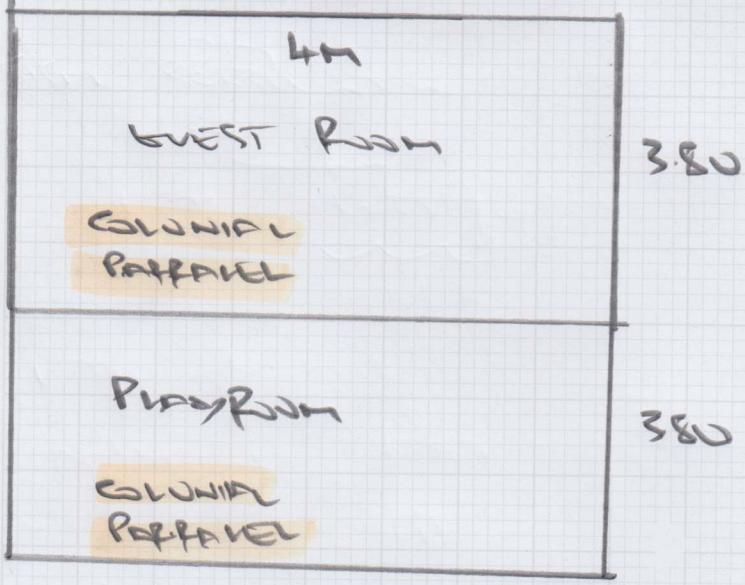 4M
GUEST ROOM
3.80
COLONIAL
PARRAVEL
PLAYROOM
3.80
COLONIAL
PARRAVEL